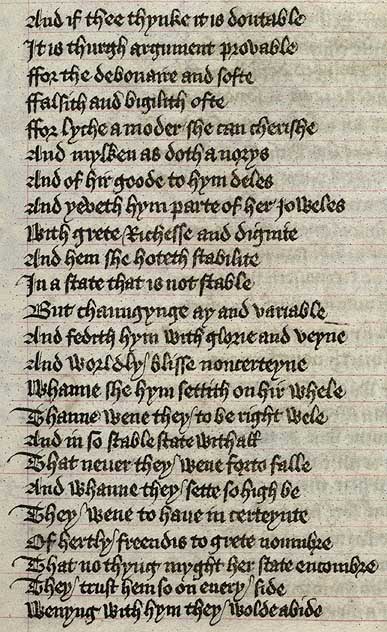 And if thee thynke it is doutable
It is thurgh argument provable
ffor the debonaire and softe
ffalsith and bigilith ofte
ffor lyche a moder she can cherishe
And mylken as doth a norys
And of hir goode to hym deles
And yeveth hym parte of her joweles
With grete Richesse and dignite
And hem she hoteth stabilite
In a state that is not stable
But chaungynge ay and variable
And fedith hym with glorie and veyne
And worldly blisse noncerteyne
Whanne she hym settith on hir whele
Thanne wene they to be right wele
And in so stable state withall
That never they wene forto falle
And whanne they sette so high be
They wene to have in certeynte
Of herthy freendis to grete noumbre
That no thyng myght her state encombre
They trust hem so on every side
Wenyng with hym they wolde abide